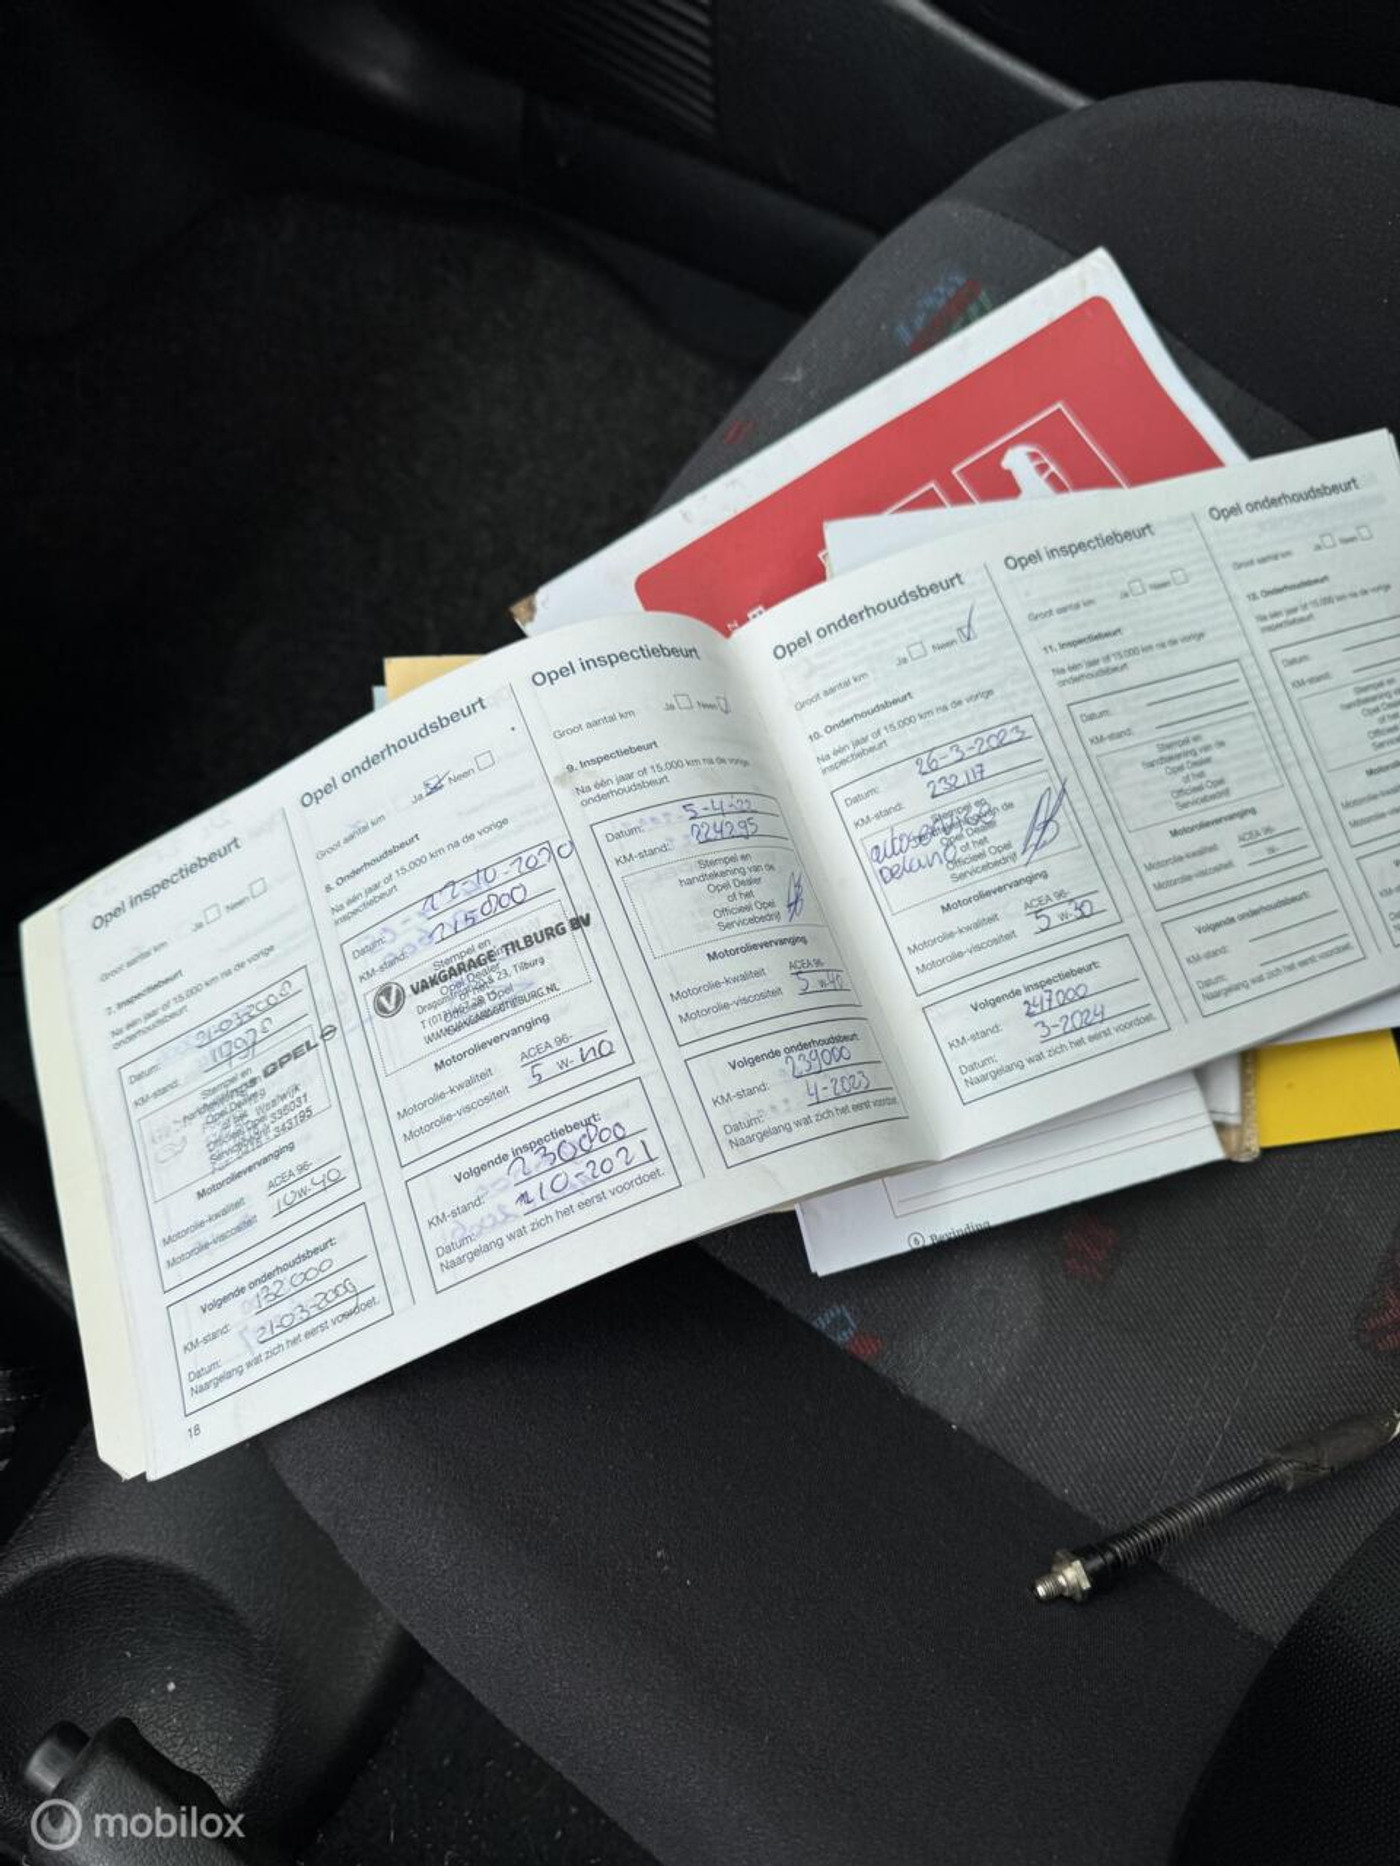 Opel inspectiebeurt
Groot aantal km Ja Neen
7. Inspectiebeurt
Na één jaar of 15.000 km na de vorige
onderhoudsbeurt
Datum:
KM-stand:
OPEL
Motorolievervanging
Motorolie-kwaliteit ACEA 96-
Motorolie-viscositeit 10 W-40
Volgende onderhoudsbeurt:
KM-stand: 132000
Datum: 21-03-2009
Naargelang wat zich het eerst voordoet.
18
Opel onderhoudsbeurt
Groot aantal km Ja Neen
8. Onderhoudsbeurt
Na één jaar of 15.000 km na de vorige
inspectiebeurt
Datum:
KM-stand: 215000
VAKGARAGE TILBURG BV
23, Tilburg
Motorolievervanging
Motorolie-kwaliteit ACEA 96-
Motorolie-viscositeit 5 W-40
Volgende inspectiebeurt:
KM-stand: 230000
Datum: 10-2021
Naargelang wat zich het eerst voordoet.
Opel inspectiebeurt
Groot aantal km Ja Neen
9. Inspectiebeurt
Na één jaar of 15.000 km na de vorige
onderhoudsbeurt
Datum: 5-4-22
KM-stand: 224295
Stempel en
handtekening van de
Opel Dealer
of het
Officieel Opel
Servicebedrijf
Motorolievervanging
Motorolie-kwaliteit ACEA 96-
Motorolie-viscositeit 5 W-40
Volgende onderhoudsbeurt
KM-stand: 239000
Datum: 4-2023
Naargelang wat zich het eerst voordoet.
Opel onderhoudsbeurt
Groot aantal km Ja Neen
10. Onderhoudsbeurt
Na één jaar of 15.000 km na de vorige
inspectiebeurt
Datum: 26-3-2023
KM-stand: 232117
Stempel en
Opel Dealer
of het
Officieel Opel
Servicebedrijf
Motorolievervanging
Motorolie-kwaliteit ACEA 96-
Motorolie-viscositeit 5 W-30
Volgende inspectiebeurt:
KM-stand: 247000
Datum: 3-2024
Naargelang wat zich het eerst voordoet.
Opel inspectiebeurt
Groot aantal km Ja Neen
11. Inspectiebeurt
Na één jaar of 15.000 km na de vorige
onderhoudsbeurt
Datum:
KM-stand:
Stempel en
handtekening van de
Opel Dealer
of het
Officieel Opel
Servicebedrijf
Motorolievervanging
Motorolie-kwaliteit ACEA 96-
Motorolie-viscositeit W-
Volgende onderhoudsbeurt:
KM-stand:
Datum:
Naargelang wat zich het eerst voordoet.
Opel onderhoudsbeurt
Groot aantal km Ja Neen
12. Onderhoudsbeurt
Na één jaar of 15.000 km na de vorige
inspectiebeurt
Datum:
KM-stand:
6 Bevinding
mobilox